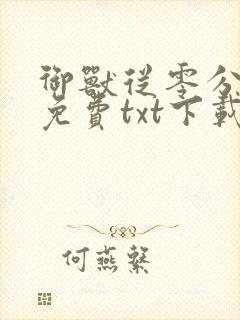 御獸從零分
免費txt下載
何燕繁